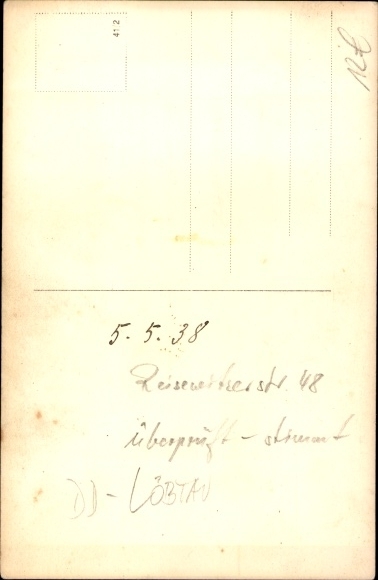 412
12€
5. 5. 38
Reisewitzerstr. 48
überprüft - stimmt
DD - LÖBTAU